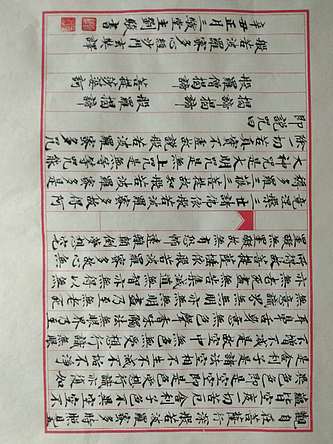 觀自在菩薩行深般若波羅蜜多時照見五
蘊皆空度一切苦厄舍利子色不異空空不
異色色即是空空即是色受想行識亦復如
是舍利子是諸法空相不生不滅不垢不淨
不增不減是故空中無色無受想行識無眼
耳鼻舌身意無色聲香味觸法無眼界乃至
無意識界無無明亦無無明盡乃至無老死
亦無老死盡無苦集滅道無智亦無得以無所
得故菩提薩埵依般若波羅蜜多故心無
罣礙無罣礙故無有恐怖遠離顛倒夢想究
竟涅槃三世諸佛依般若波羅蜜多故得阿
耨多羅三藐三菩提故知般若波羅蜜多是
大神咒是大明咒是無上咒是無等等咒能
除一切苦真實不虛故說般若波羅蜜多咒
即說咒曰
揭諦揭諦 般羅揭諦
般羅僧揭諦 菩提薩婆訶
般若波羅蜜多心經 沙門玄奘譯
辛丑正月三 堂主劉 書